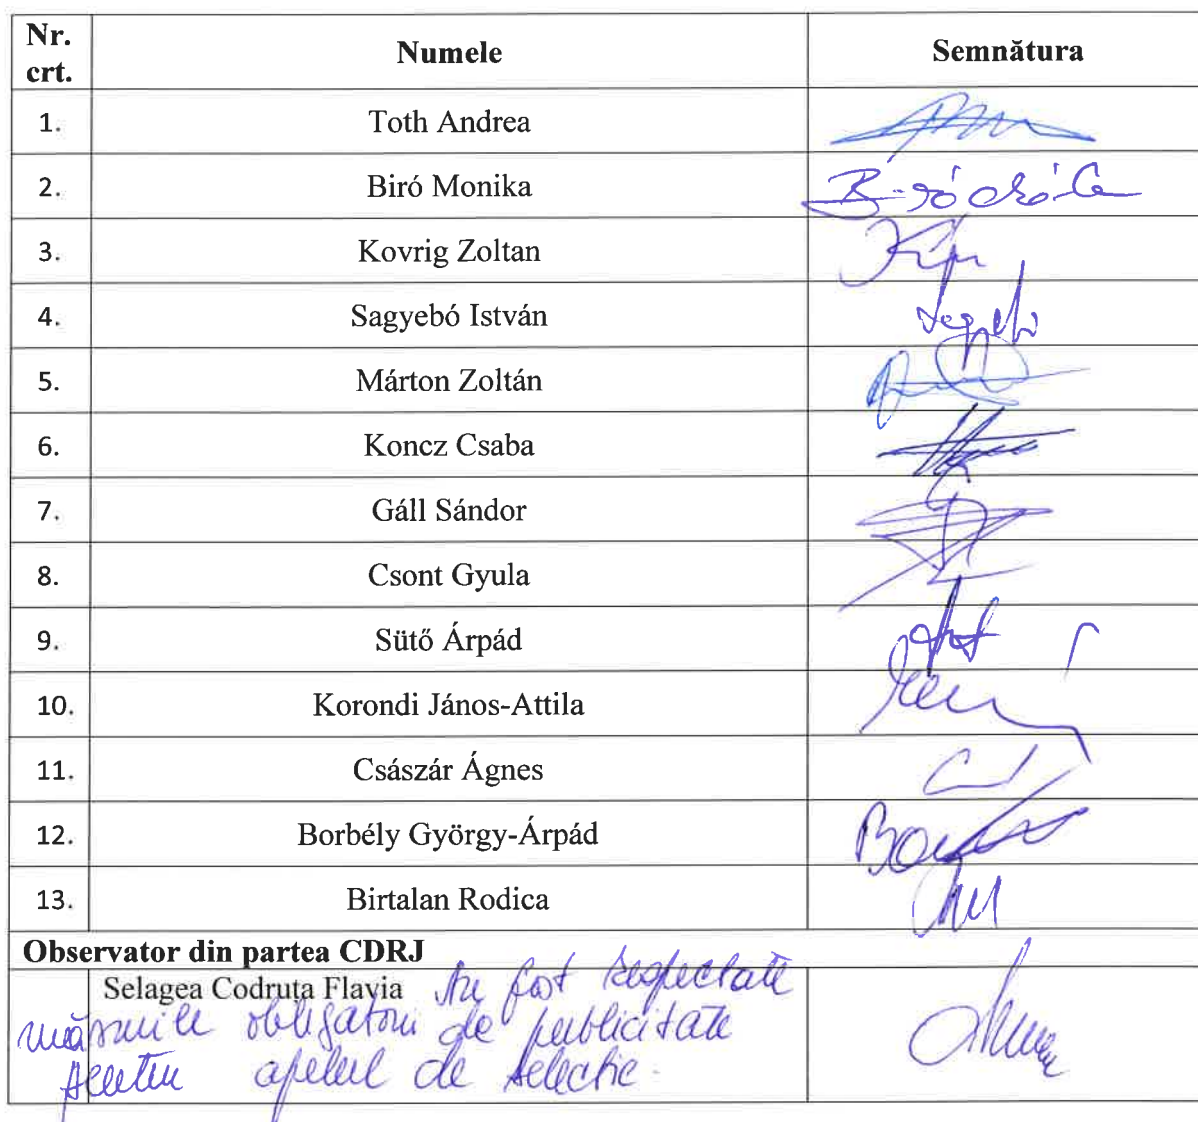 Nr. crt. Numele Semnătura
1. Toth Andrea
2. Biró Monika
3. Kovrig Zoltan
4. Sagyebó István
5. Márton Zoltán
6. Koncz Csaba
7. Gáll Sándor
8. Csont Gyula
9. Sütő Árpád
10. Korondi János-Attila
11. Császár Ágnes
12. Borbély György-Árpád
13. Birtalan Rodica
Observator din partea CDRJ
Selagea Codruța Flavia Au fost respectate
măsurile obligatorii de publicitate
pentru apelul de selectie.